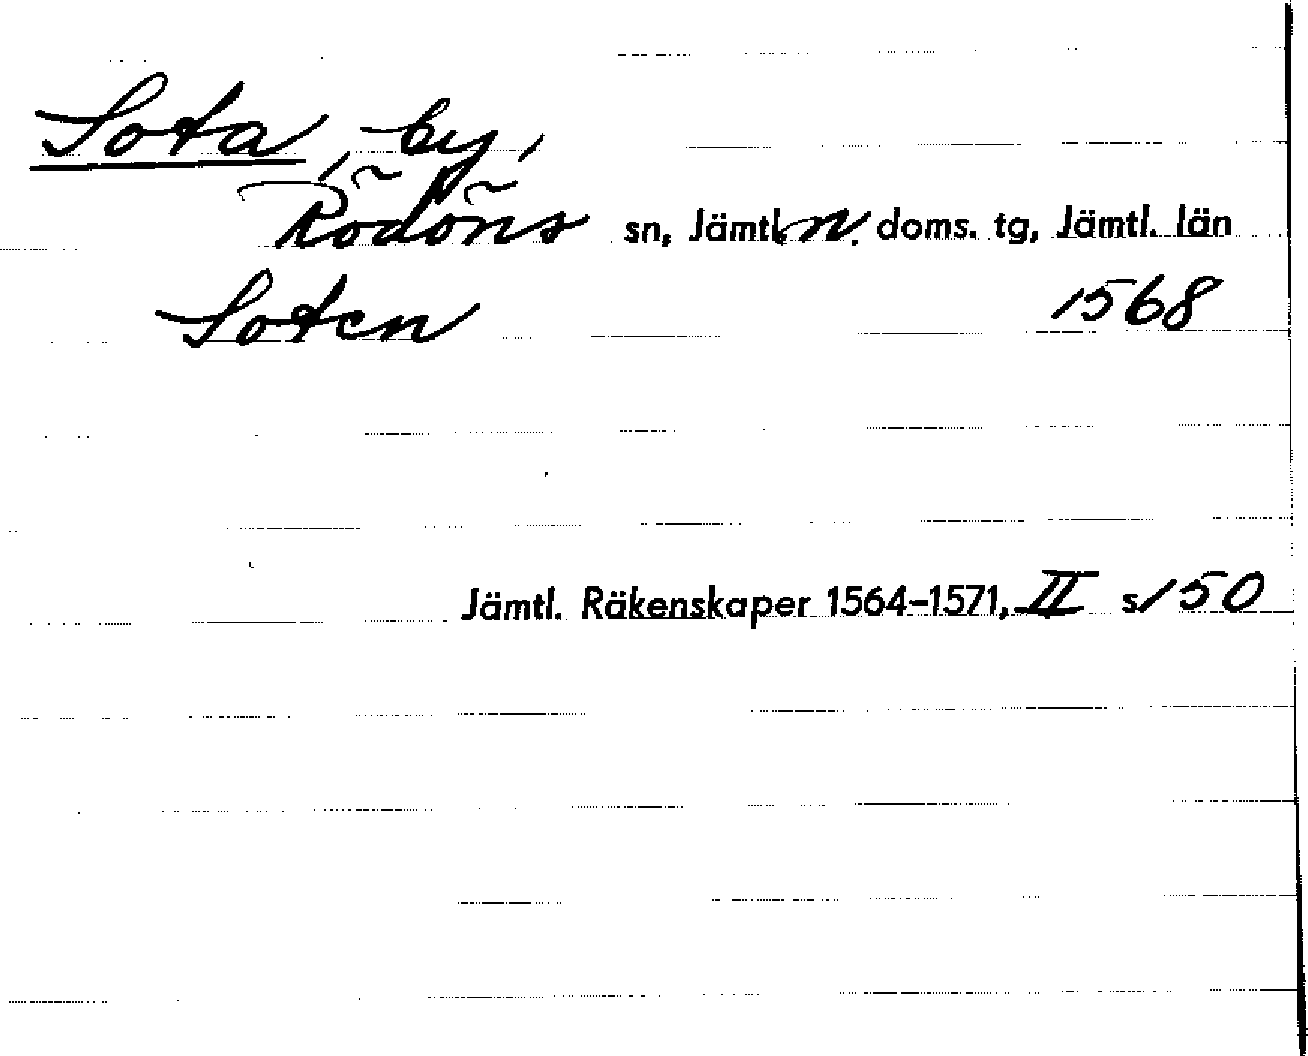 Sota, by,
Rödöns sn, Jämtl. n. doms. tg, Jämtl. län
Soten 1568
Jämtl. Räkenskaper 1564-1571, II s 150